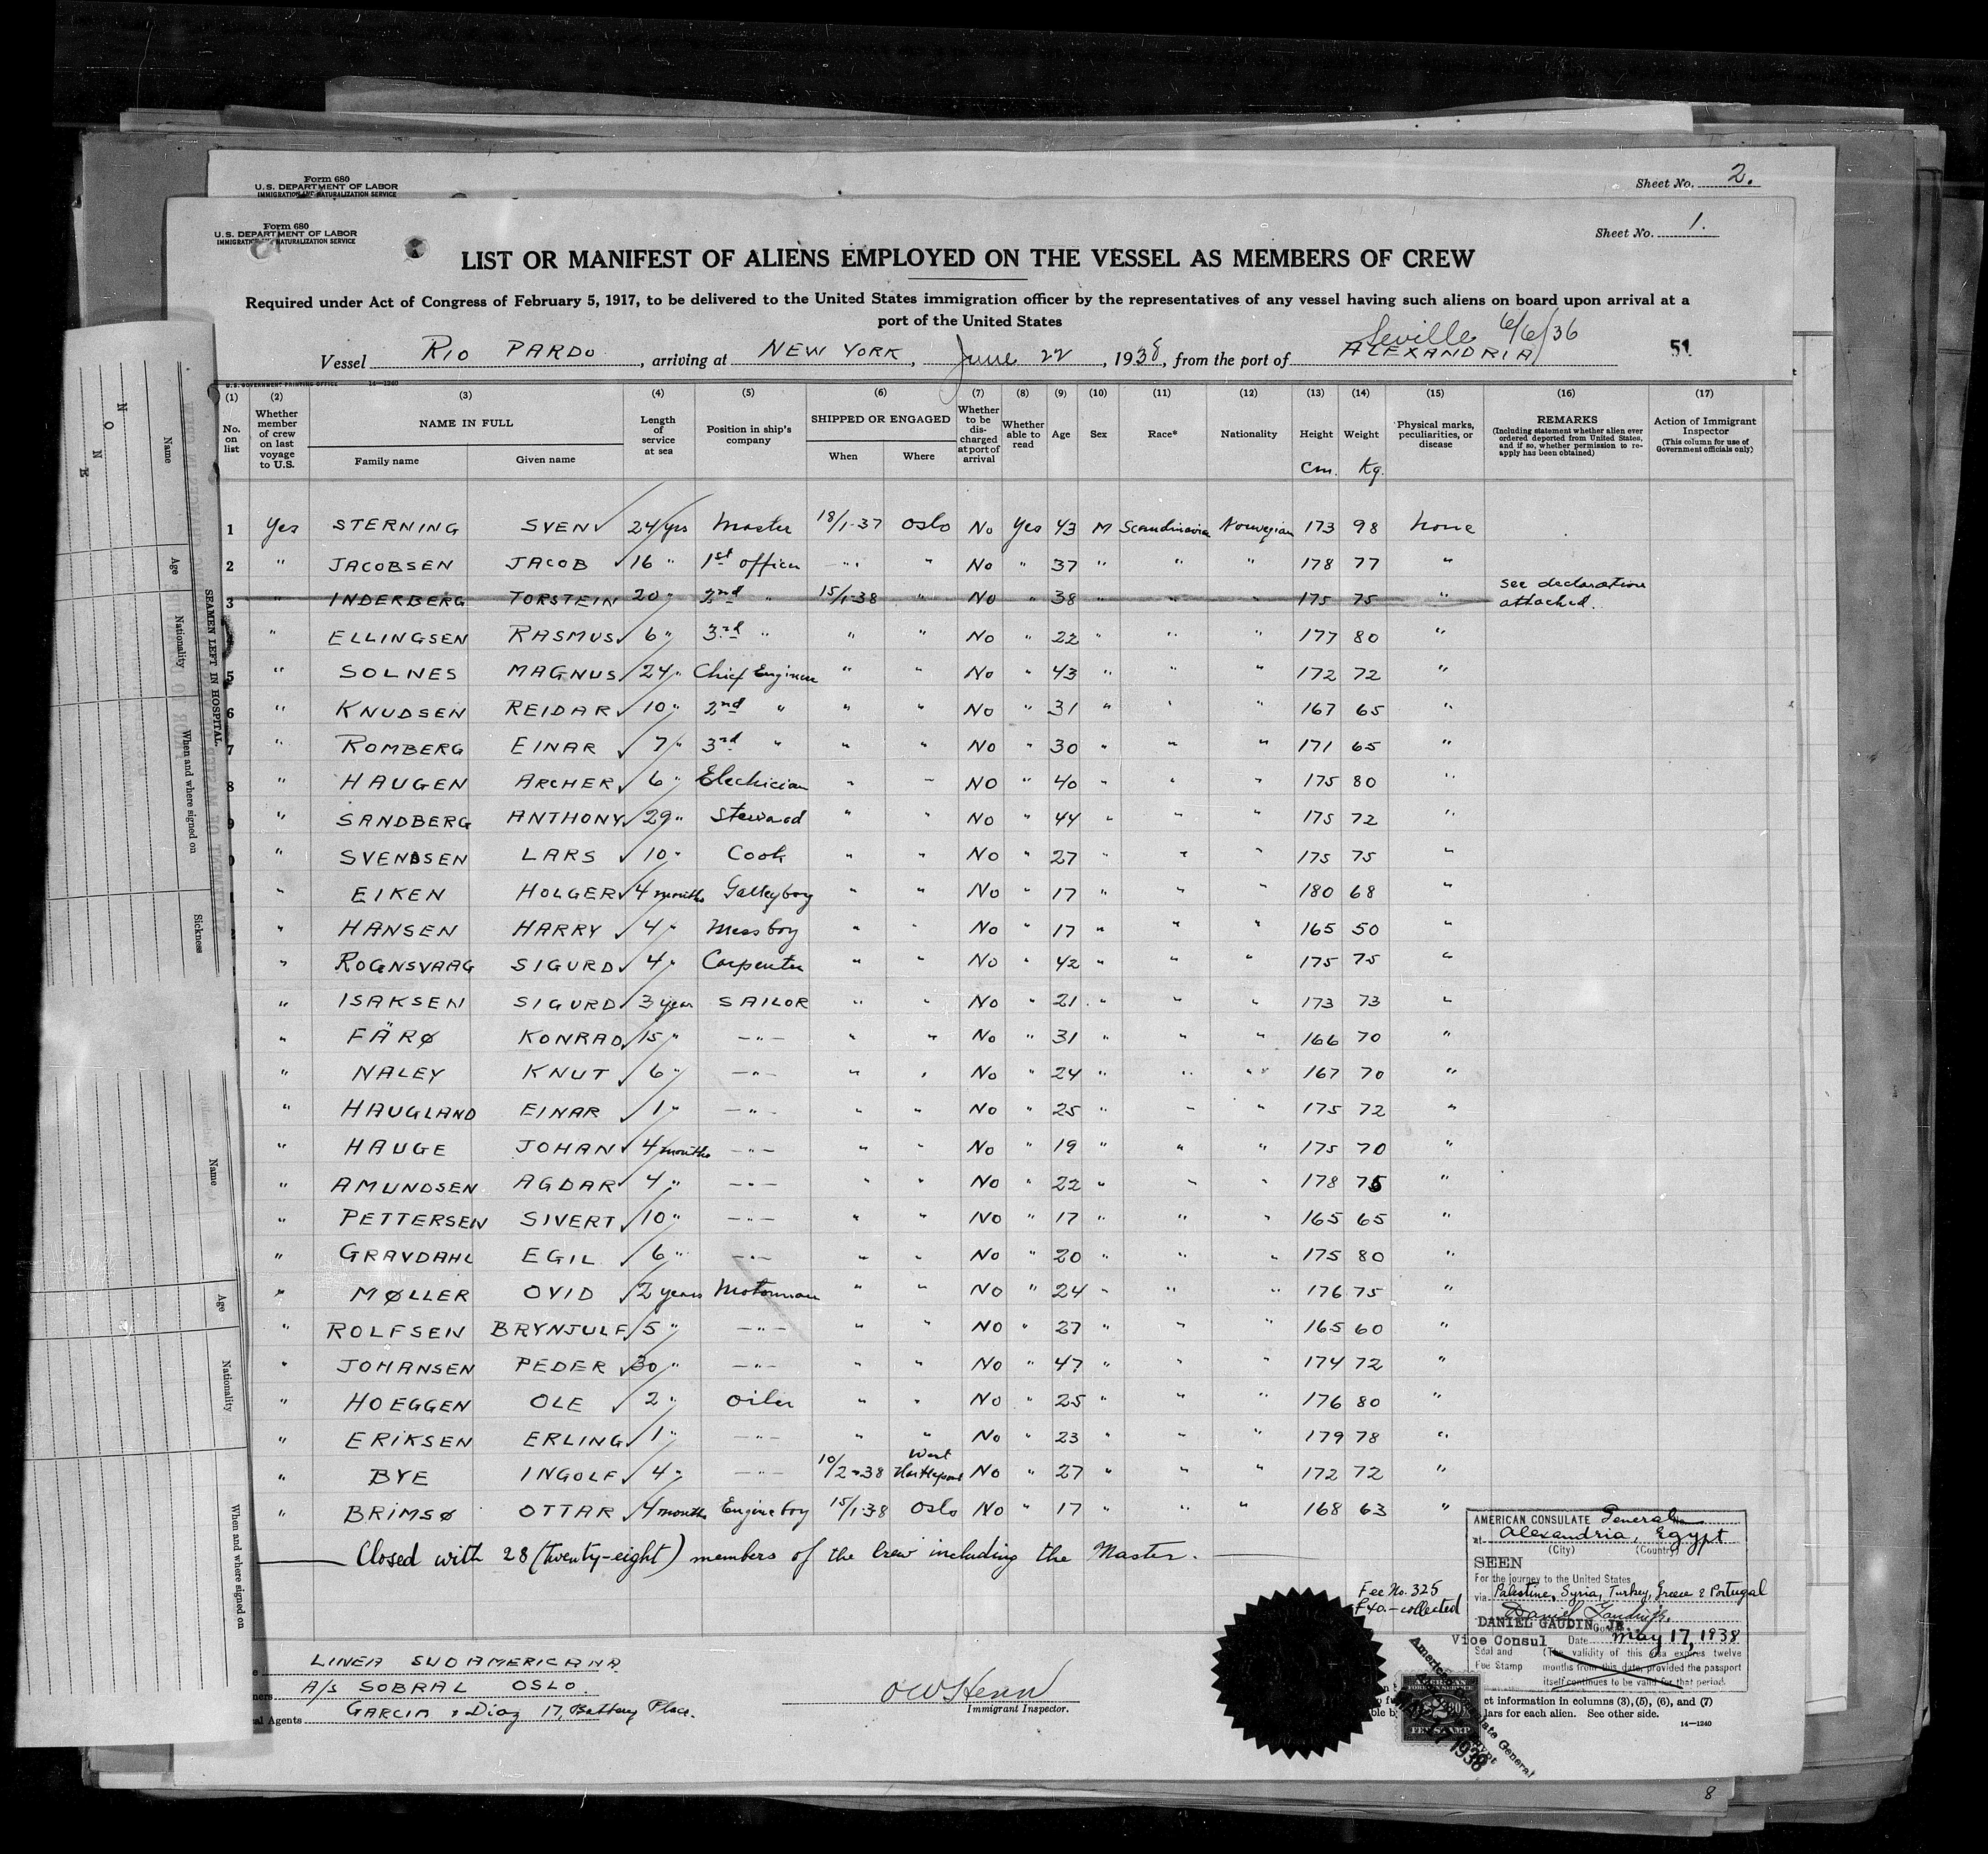 Form 680
U. S. DEPARTMENT OF LABOR
IMMIGRATION AND NATURALIZATION SERVICE
Sheet No. 2.
Form 680
U. S. DEPARTMENT OF LABOR
IMMIGRATION AND NATURALIZATION SERVICE
Sheet No. 1.
LIST OR MANIFEST OF ALIENS EMPLOYED ON THE VESSEL AS MEMBERS OF CREW
Required under Act of Congress of February 5, 1917, to be delivered to the United States immigration officer by the representatives of any vessel having such aliens on board upon arrival at a
port of the United States
Seville 6/6/36
Vessel RIO PARDO, arriving at NEW YORK, June 22, 1938, from the port of ALEXANDRIA 51
U.S. GOVERNMENT PRINTING OFFICE 14—1240
(1) No. on list
(2) Whether member of crew on last voyage to U.S.
(3) NAME IN FULL Family name Given name
(4) Length of service at sea
(5) Position in ship's company
(6) SHIPPED OR ENGAGED When Where
(7) Whether to be discharged at port of arrival
(8) Whether able to read
(9) Age
(10) Sex
(11) Race*
(12) Nationality
(13) Height cm.
(14) Weight Kg.
(15) Physical marks, peculiarities, or disease
(16) REMARKS (Including statement whether alien ever ordered deported from United States, and if so, whether permission to reapply has been obtained)
(17) Action of Immigrant Inspector (This column for use of Government officials only)
1 Yes STERNING SVEN 24 yrs Master 18/1-37 Oslo No Yes 43 M Scandinavia Norwegian 173 98 None
2 " JACOBSEN JACOB 16 " 1st officer —"— " No " 37 " " " 178 77 "
3 " INDERBERG TORSTEIN 20 " 2nd " 15/1-38 " No " 38 " " " 175 75 " see declaration attached.
" ELLINGSEN RASMUS 6 " 3rd " " " No " 22 " " " 177 80 "
5 " SOLNES MAGNUS 24 " Chief Engineer " " No " 43 " " " 172 72 "
6 " KNUDSEN REIDAR 10 " 2nd " " " No " 31 " " " 167 65 "
7 " ROMBERG EINAR 7 " 3rd " " " No " 30 " " " 171 65 "
8 " HAUGEN ARCHER 6 " Electrician " " NO " 40 " " " 175 80 "
9 " SANDBERG ANTHONY 29 " Steward " " No " 44 " " " 175 72 "
" SVENDSEN LARS 10 " Cook " " No " 27 " " " 175 75 "
" EIKEN HOLGER 4 months Galleyboy " " No " 17 " " " 180 68 "
" HANSEN HARRY 4 " Messboy " " No " 17 " " " 165 50 "
" ROGNSVAAG SIGURD 4 " Carpenter " " No " 42 " " " 175 75 "
" ISAKSEN SIGURD 3 year SAILOR " " No " 21 " " " 173 73 "
" FÄRØ KONRAD 15 " —"— " " No " 31 " " " 166 70 "
" NALEY KNUT 6 " —"— " " No " 24 " " " 167 70 "
" HAUGLAND EINAR 1 " —"— " " No " 25 " " " 175 72 "
" HAUGE JOHAN 4 months —"— " " No " 19 " " " 175 70 "
" AMUNDSEN AGDAR 4 " —"— " " No " 22 " " " 178 75 "
" PETTERSEN SIVERT 10 " —"— " " No " 17 " " " 165 65 "
" GRAVDAHL EGIL 6 " —"— " " No " 20 " " " 175 80 "
" MØLLER OVID 2 years Motorman " " No " 24 " " " 176 75 "
" ROLFSEN BRYNJULF 5 " —"— " " NO " 27 " " " 165 60 "
" JOHANSEN PEDER 30 " —"— " " No " 47 " " " 174 72 "
" HOEGGEN OLE 2 " oiler " " No " 25 " " " 176 80 "
" ERIKSEN ERLING 1 " —"— " " No " 23 " " " 179 78 "
" BYE INGOLF 4 " —"— 10/2-38 West Hartlepool No " 27 " " " 172 72 "
" BRIMSØ OTTAR 4 months Engineboy 15/1-38 Oslo No " 17 " " " 168 63 "
Closed with 28 (twenty-eight) members of the Crew including the Master.
Fee No. 325
£40.— collected
AMERICAN CONSULATE General
at Alexandria, Egypt
(City) (Country)
SEEN
For the journey to the United States
via Palestine, Syria, Turkey, Greece & Portugal
Daniel Gaudin Jr.
DANIEL GAUDIN JR.
Vice Consul Date May 17, 1938
Seal and Fee Stamp
(The validity of this visa expires twelve
months from this date, provided the passport
itself continues to be valid for that period.
LINEA SUDAMERICANA
A/S SOBRAL OSLO.
Agents GARCIA & Diaz 17, Battery Place.
Immigrant Inspector.
ct information in columns (3), (5), (6), and (7)
lars for each alien. See other side.
14—1240
American Consulate General
MAY 17 1938
AMERICAN
FOREIGN SERVICE
FEE STAMP
NONE
Name
Age
Nationality
When and where signed on
Sickness
SEAMEN LEFT IN HOSPITAL
Name
Age
Nationality
When and where signed on
8